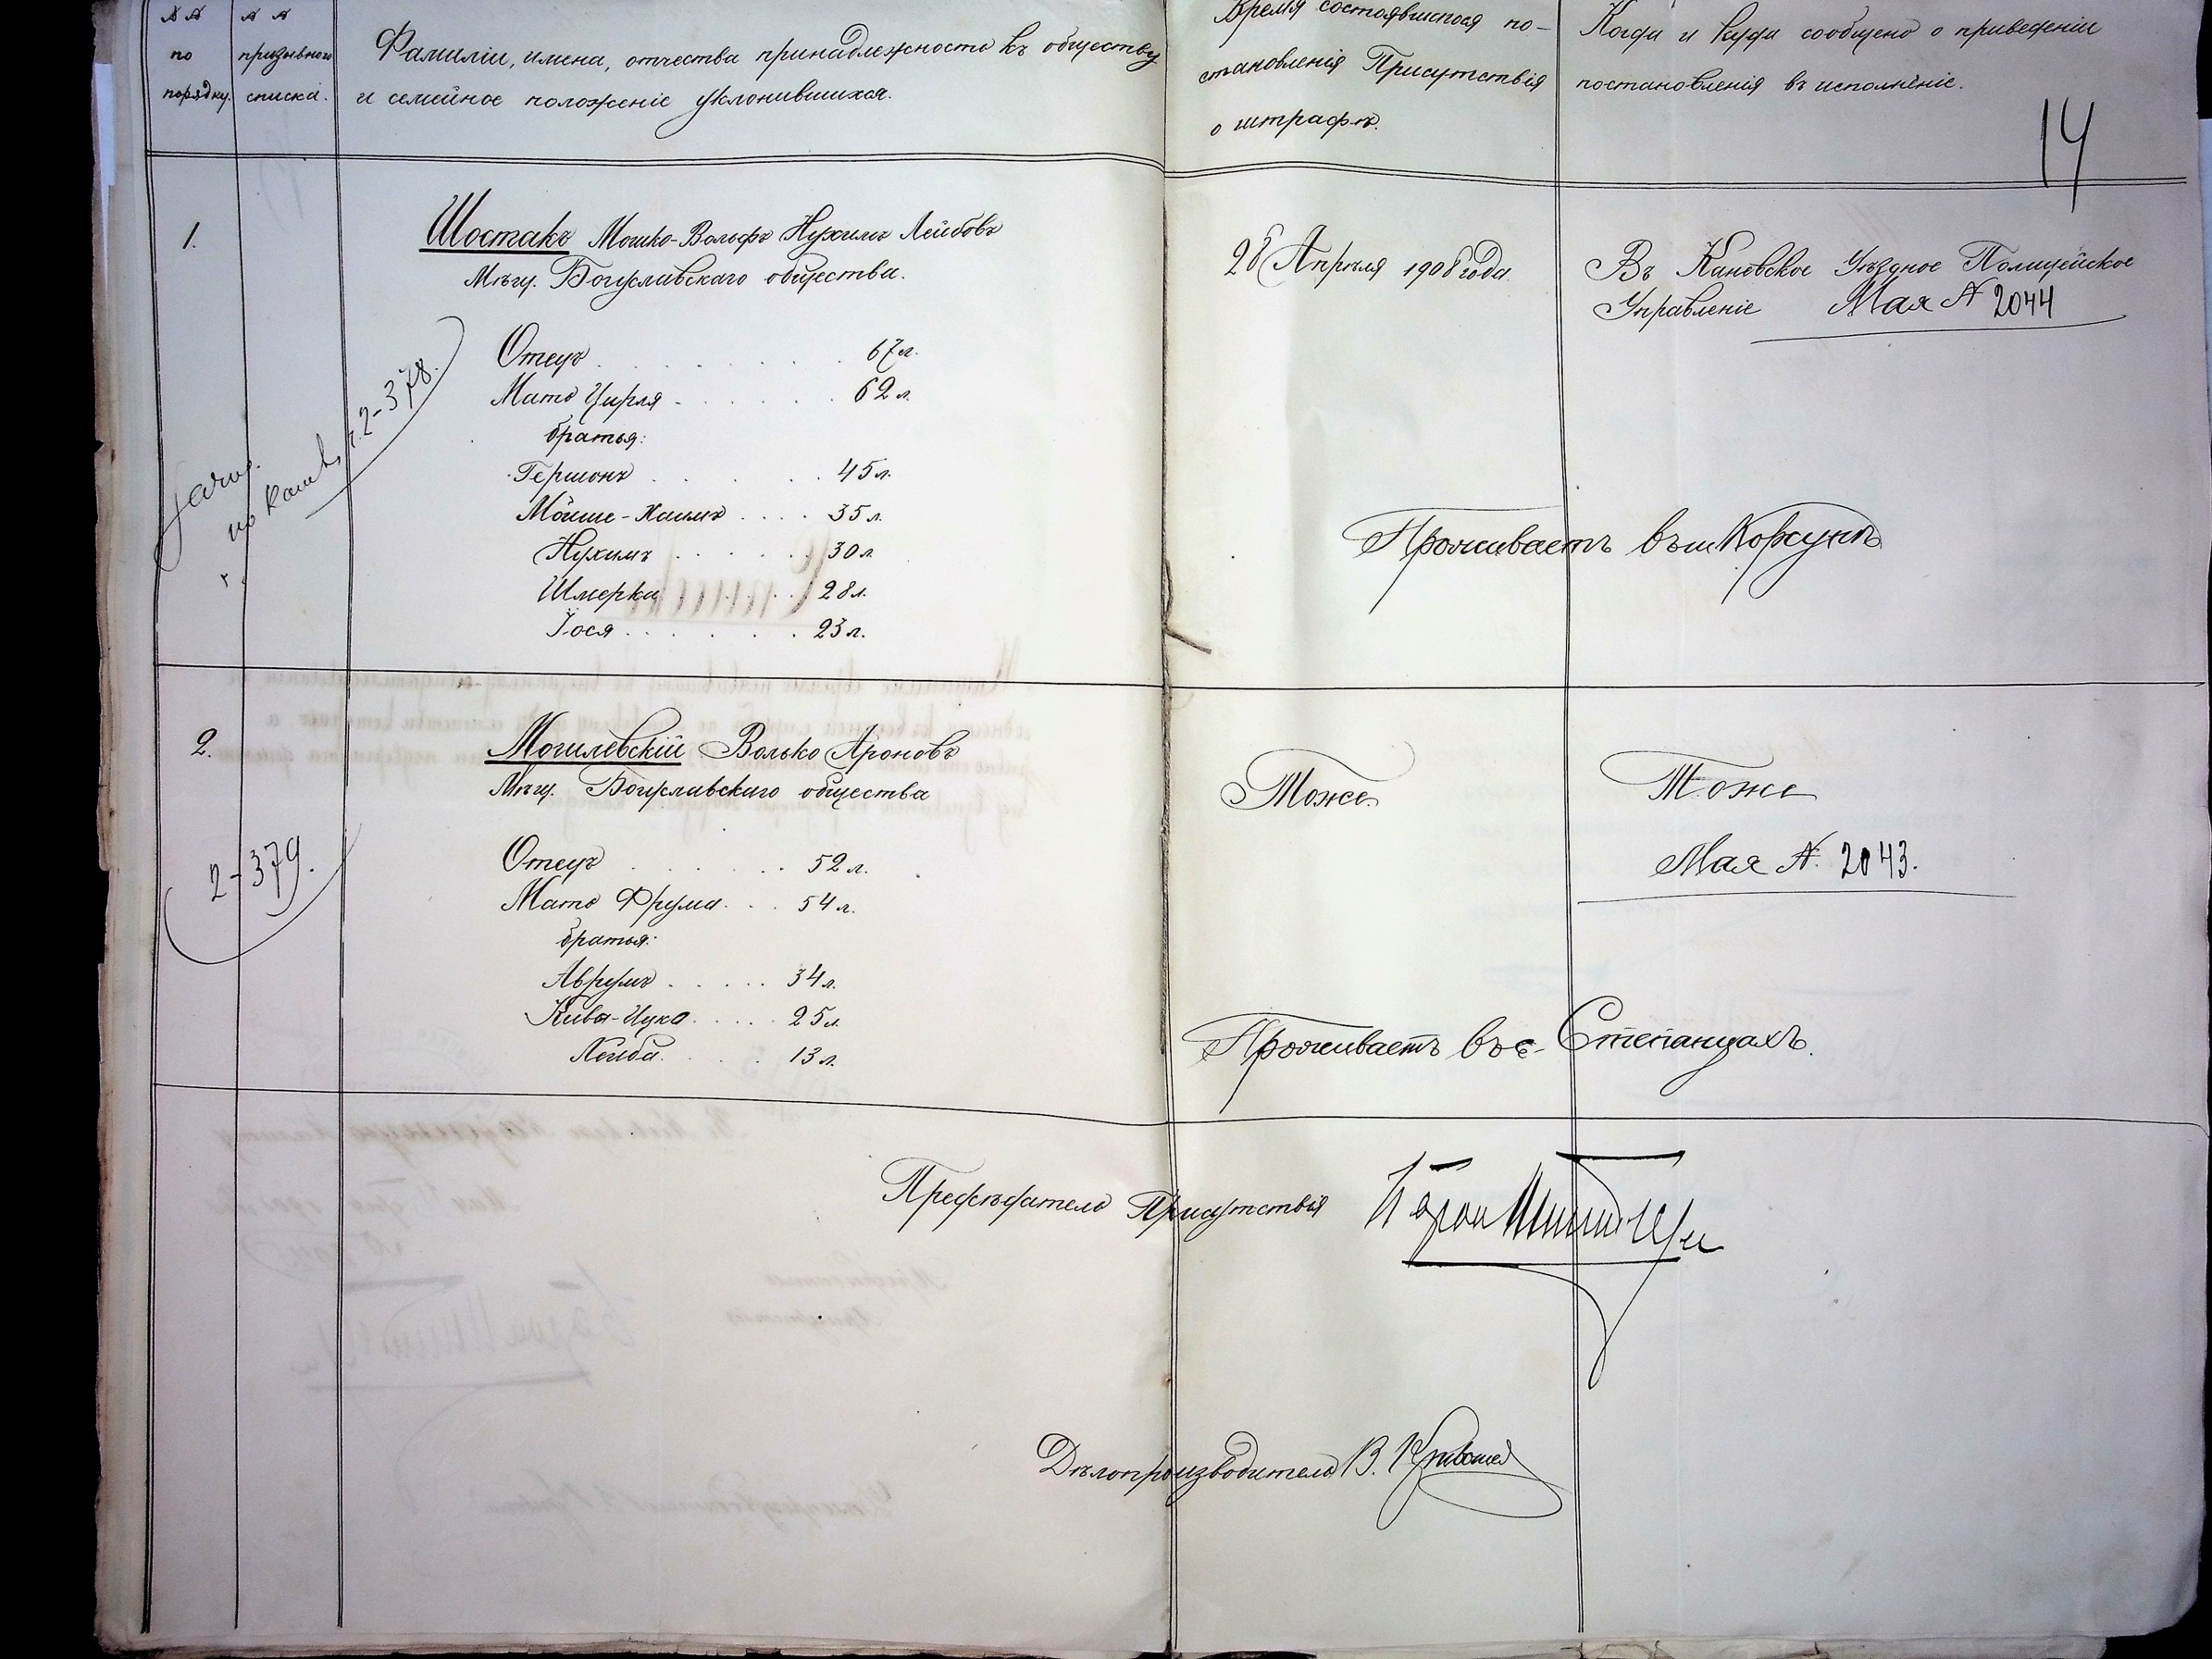 №№ по порядку.
№№ призывного списка.
Фамиліи, имена, отчества принадлежность къ обществу
и семейное положеніе уклонившихся.
Время состоявшагося по-
становленія Присутствія
о штрафѣ.
Когда и куда сообщено о приведеніи
постановленія въ исполненіе.
14
1.
Шостакъ Мошко-Вольфъ Нухимъ Лейбовъ
Мѣщ. Богуславскаго общества.
Отецъ 67 л.
Мать Цирля 62 л.
братья:
Гершонъ 45 л.
Мойше-Хаимъ 35 л.
Нухимъ 30 л.
Шмерка 28 л.
Іося 23 л.
2-378.
28 Апрѣля 1908 года
Въ Каневское Уѣздное Полицейское
Управленіе Мая № 2044
Проживаетъ въ м Корсунѣ
2.
Могилевскій Волько Ароновъ
Мѣщ. Богуславскаго общества
Отецъ 52 л.
Мать Фрума 54 л.
братья:
Аврумъ 34 л.
Кива-Ицко 25 л.
Лейба 13 л.
2-379.
Тоже
Тоже
Мая № 2043.
Проживаетъ въ с- Степанцахъ.
Предсѣдатель Присутствія
Дѣлопроизводитель В.